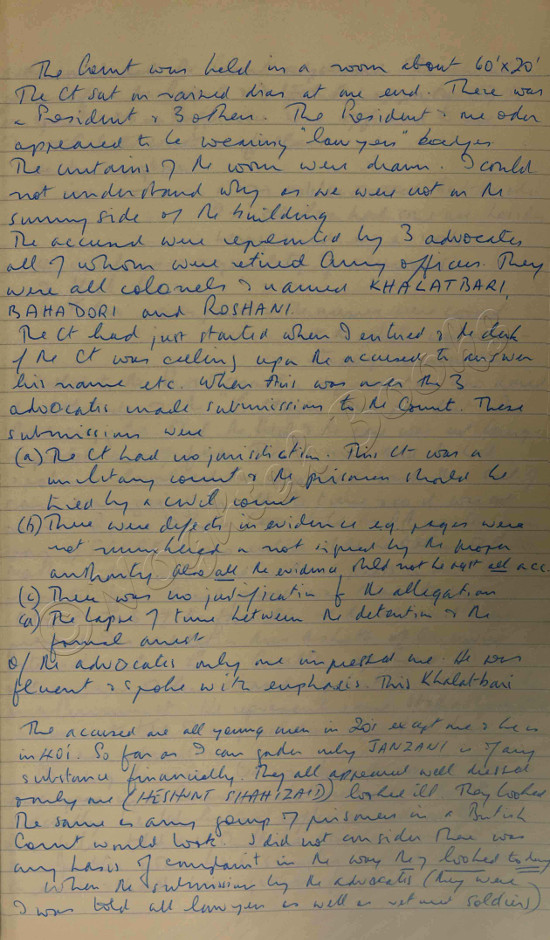 The Court was held in a room about 60'x20'
The Ct sat on raised dias at one end. There was
a President & 3 others. The President & one other
appeared to be wearing "lawyers" badges
The curtains of the room were drawn. I could
not understand why as we were not on the
sunny side of the building
The accused were represented by 3 advocates
all of whom were retired Army officers. They
were all colonels & named KHALATBARI,
BAHADORI and ROSHANI.
The Ct had just started when I entered & the clerk
of the Ct was calling upon the accused to answer
his name etc. When this was over the 3
advocates made submissions to the Court. These
submissions were
(a) The Ct had no jurisdiction. This Ct was a
military court & the prisoners should be
tried by a civil court
(b) There were defects in evidence eg pages were
not numbered or not signed by the proper
authority. Also all the evidence shld not be agst all acc.
(c) There was no justification of the allegation
(d) The lapse of time between the detention & the
formal arrest
Of the advocates only one impressed me. He was
fluent & spoke with emphasis. This Khalatbari
The accused are all young men in 20's except one & he is
in 40's. So far as I can gather only JANZANI is of any
substance financially. They all appeared well dressed
& only one (HESHMT SHAHIZAID) looked ill. They looked
the same as any group of prisoners in a British
Court would look. I did not consider there was
any basis of complaint in the way they looked today
When the submissions by the advocates (they were
I was told all lawyers as well as retired soldiers)